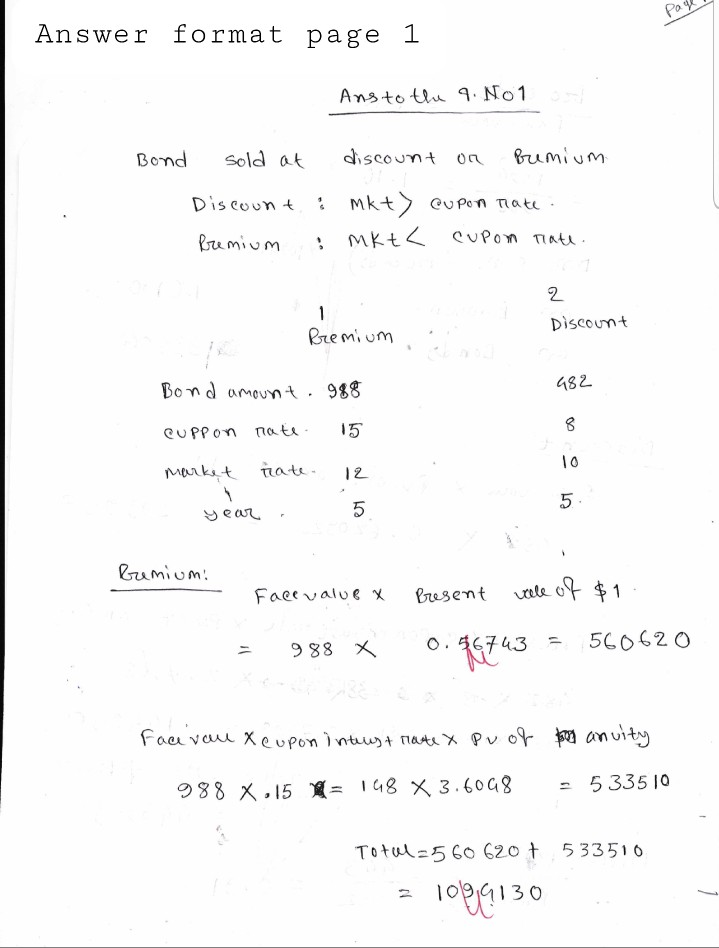 Page
Answer format page 1
Ans to the q. No 1
Bond sold at discount or Premium
Discount : Mkt > cupon rate.
Premium : Mkt < cupon rate.
1 2
Premium Discount
Bond amount. 988 482
cuppon rate. 15 8
market rate. 12 10
year. 5 5.
Premium:
Face value x Present vale of $1
= 988 x 0.56743 = 560620
Face vale x cupon interest rate x PV of anuity
988 x .15 = 148 x 3.6048 = 533510
Total = 560620 + 533510
= 1094130